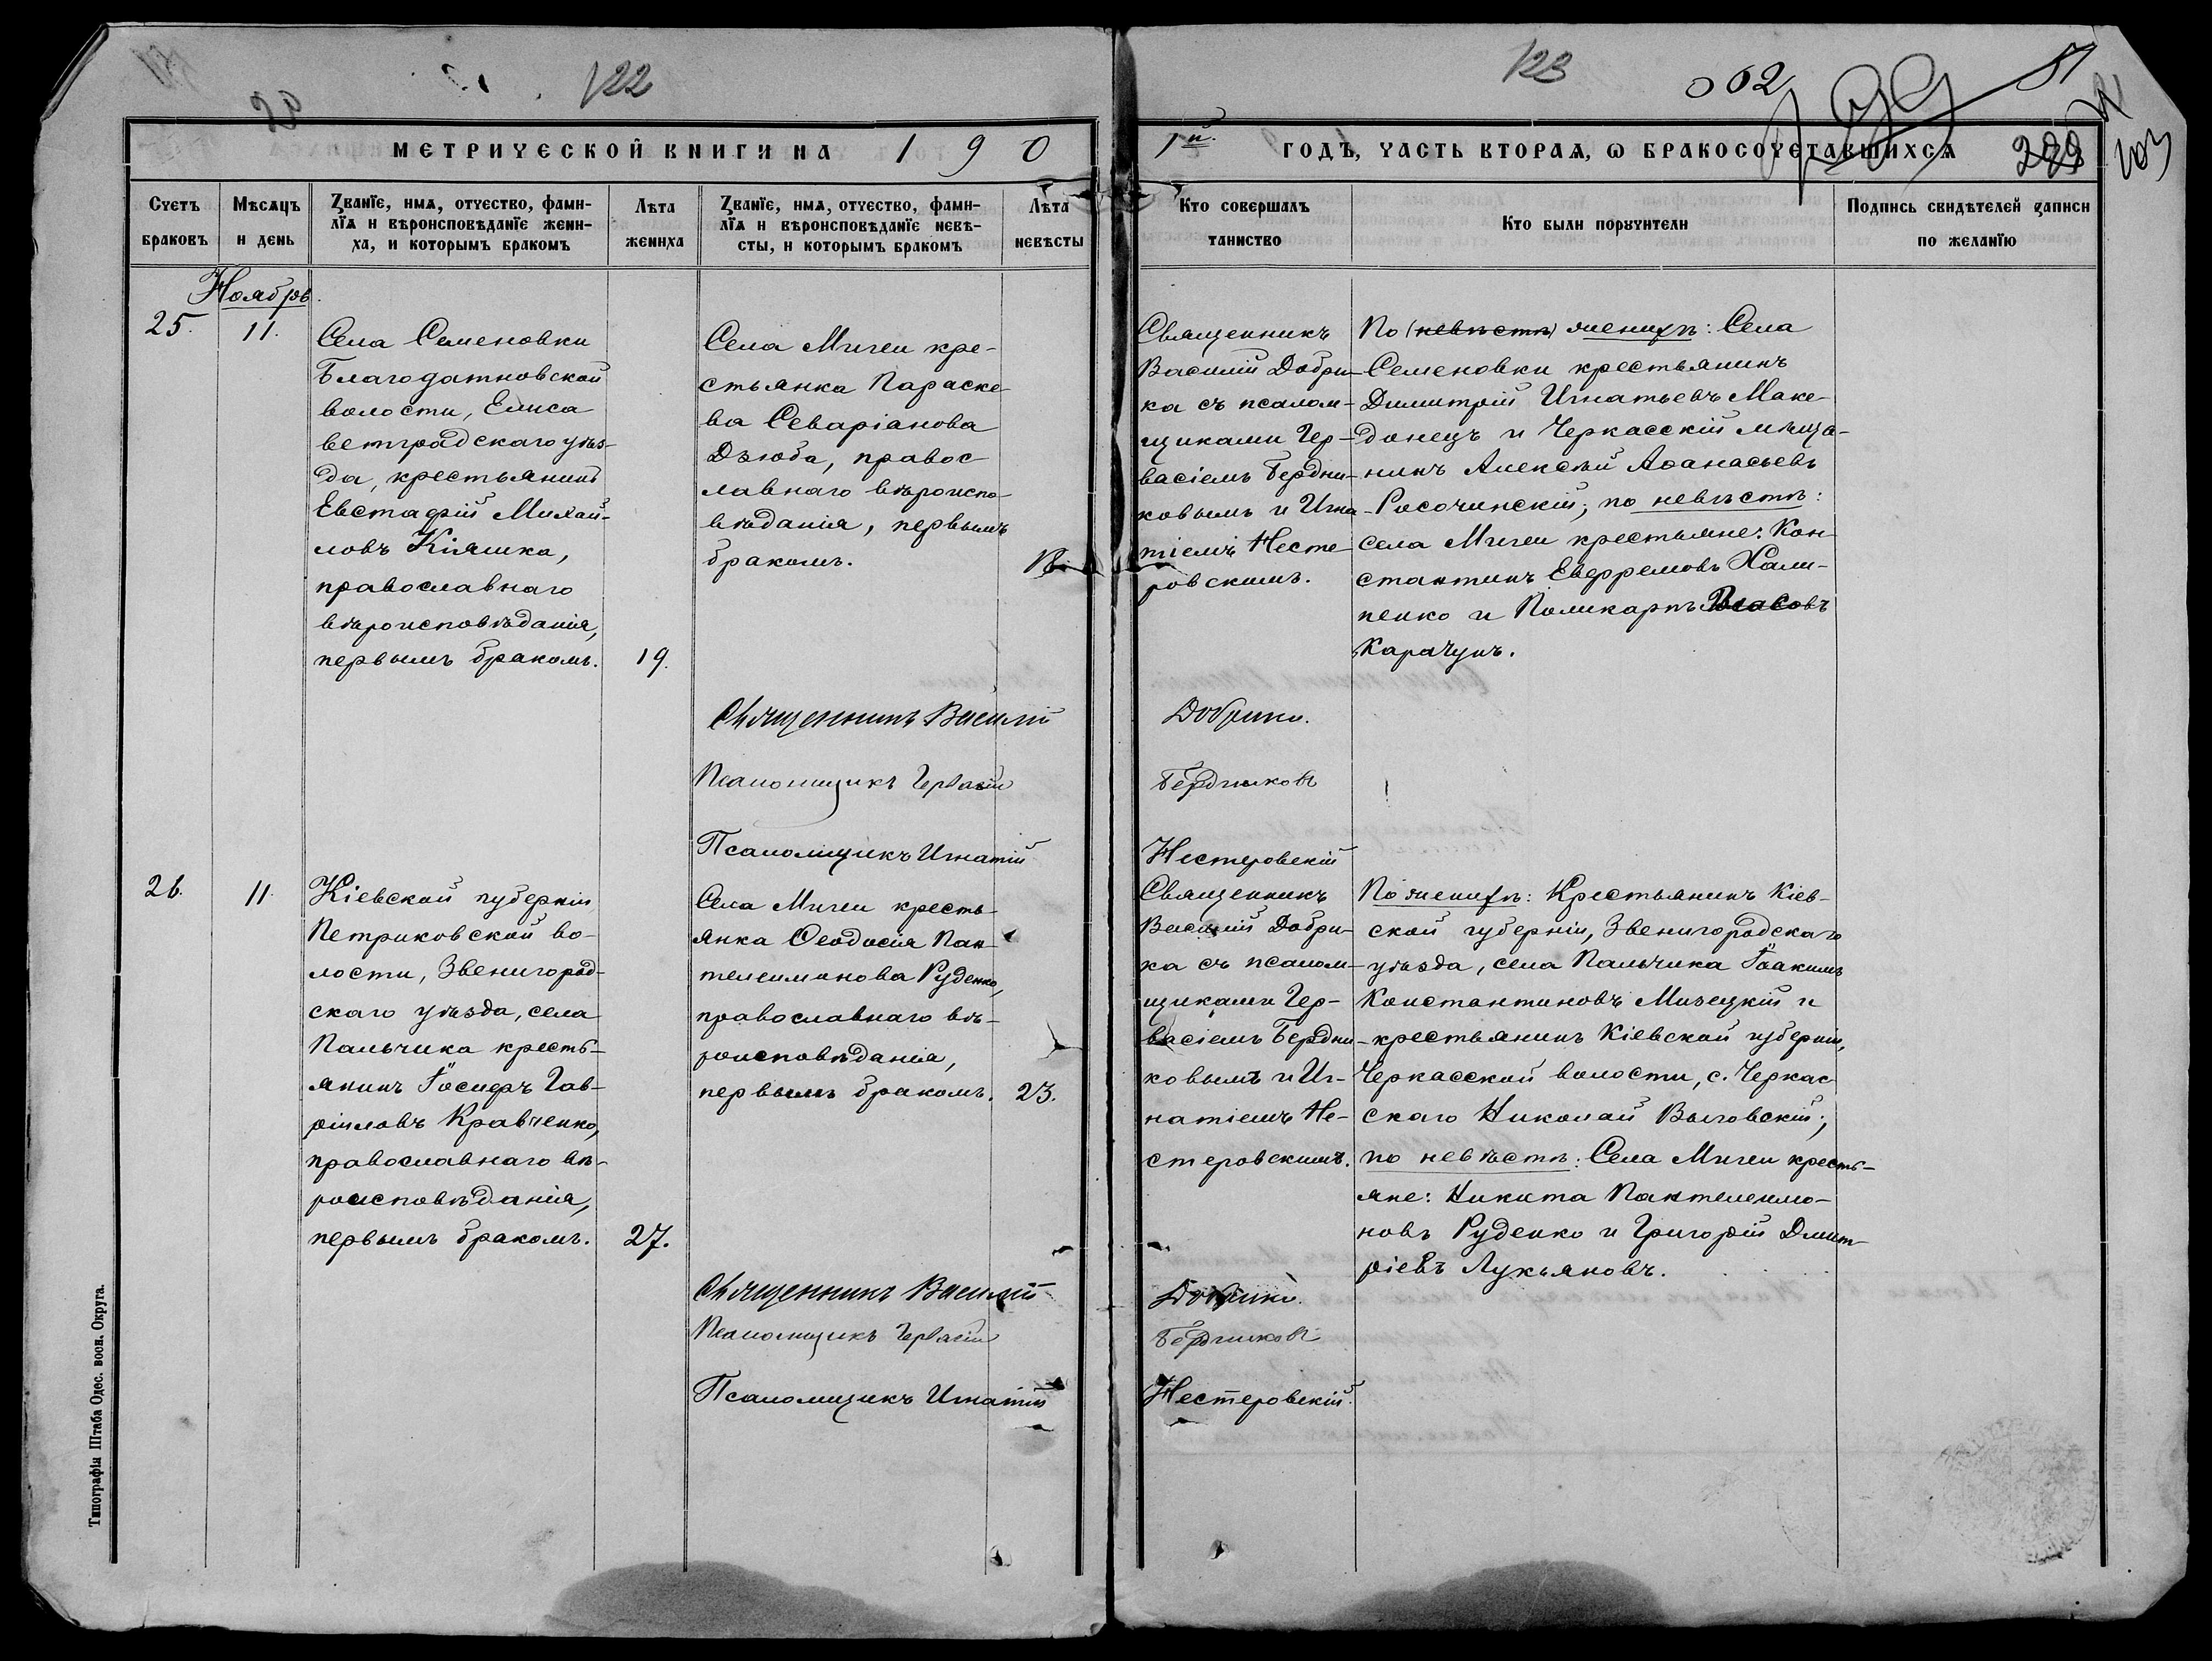 122
20
123
062
51
103
МЕТРИЧЕСКОЙ КНИГИ НА 1 9 0
1й. ГОДЪ, ЧАСТЬ ВТОРАЯ, Ѡ БРАКОСОЧЕТАВШИХСЯ
Счетъ браковъ
Мѣсяцъ и день
Званїе, имя, отчество, фами-
лїя и вѣроисповѣданїе жени-
ха, и которымъ бракомъ
Лѣта жениха
Званїе, имя, отчество, фами-
лїя и вѣроисповѣданїе невѣ-
сты, и которымъ бракомъ
Лѣта невѣсты
Кто совершалъ таинство
Кто были поручители
Подпись свидѣтелей записи по желанїю
Ноябрь.
25.
11.
Села Семеновки
Благодатновской
волости, Елиса
ветградскаго уѣз-
да, крестьянинъ
Евстафій Михаи-
ловъ Кіяшка,
православнаго
вѣроисповѣданія,
первымъ бракомъ.
19.
Села Мигеи кре-
стьянка Параске-
ва Севаріанова
Дзюба, правос
лавнаго вѣроиспо-
вѣданія, первымъ
бракомъ.
Священникъ
Василій Добри-
ка съ псалом-
щиками Гер-
васіемъ Бердни-
ковымъ и Игна-
тіемъ Несте-
ровскимъ.
По (невѣстѣ) женихѣ: Села
Семеновки крестьянинъ
Димитрій Игнатьевъ Маке-
донецъ и Черкасскій мѣща-
нинъ Алексѣй Аѳанасьевъ
Росочинскій; по невѣстѣ:
села Мигеи крестьяне: Кон-
стантинъ Евфремовъ Хали-
пенко и Поликарпъ Власовъ
Карачунъ.
Священникъ Василій Добрика.
Псаломщикъ Гервасій Бердниковъ
Псаломщикъ Игнатій Нестеровскій
26.
11.
Кіевской губерніи
Петриковской во-
лости, Звенигород-
скаго уѣзда, села
Пальчика кресть-
янинъ Іосифъ Гав-
ріиловъ Кравченко,
православнаго вѣ-
роисповѣданія,
первымъ бракомъ.
27.
Села Мигеи кресть-
янка Ѳеодосія Пан-
телеимонова Руденко,
православнаго вѣ-
роисповѣданія,
первымъ бракомъ.
23.
Священникъ
Василій Добри-
ка съ псалом-
щиками Гер-
васіемъ Бердни-
ковымъ и Иг-
натіемъ Не-
стеровскимъ.
По женихѣ: Крестьянинъ Кіев-
ской губерніи, Звенигородскаго
уѣзда, села Пальчика Іоакимъ
Константиновъ Мизецкій и
крестьянинъ Кіевской губерніи,
Черкасской волости, с. Черкас
скаго Николай Выговскій;
по невѣстѣ: Села Мигеи кресть-
яне: Никита Пантелеимо-
новъ Руденко и Григорій Дмит-
ріевъ Лукьяновъ.
Священникъ Василій Добрика.
Псаломщикъ Гервасій Бердниковъ
Псаломщикъ Игнатій Нестеровскій.
Типографія Штаба Одес. воен. Округа.